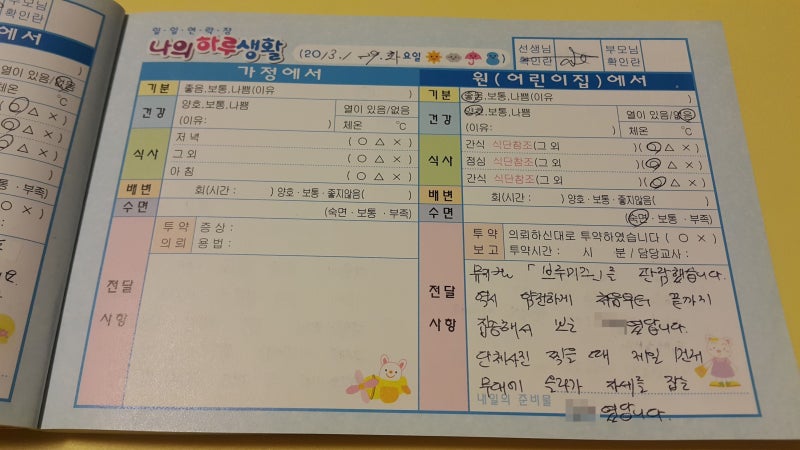 일·일·연·락·장
나의 하루생활
(2013.1-9.화요일 )
선생님 확인란
부모님 확인란
가정에서
기분 좋음,보통,나쁨(이유 )
건강 양호,보통,나쁨 열이 있음/없음
(이유: ) 체온 ℃
식사 저 녁 ( ○ △ × )
그 외 ( ○ △ × )
아 침 ( ○ △ × )
배변 회(시간 : ) 양호·보통·좋지않음( )
수면 (숙면·보통·부족)
전달 사항
투약 의뢰
증 상 :
용 법 :
원(어린이집)에서
기분 좋음,보통,나쁨(이유 )
건강 양호,보통,나쁨 열이 있음/없음
(이유: ) 체온 ℃
식사 간식 식단참조(그 외 )( ○ △ × )
점심 식단참조(그 외 )( ○ △ × )
간식 식단참조(그 외 )( ○ △ × )
배변 회(시간 : ) 양호·보통·좋지않음( )
수면 (숙면·보통·부족)
전달 사항
투약 보고
의뢰하신대로 투약하였습니다 ( ○ × )
투약시간 : 시 분 / 담당교사 :
뮤지컬 「브루미즈」를 관람했습니다.
역시 얌전하게 처음부터 끝까지
집중해서 보는 였답니다.
단체사진 찍을 때 제일 먼저
무대에 올라가 자세를 잡는
내일의 준비물
였답니다.
부모님
확인란
에서
열이 있음/없음
℃
○ △ ×
○ △ ×
○ △ ×
보통·부족)
( ○ × )